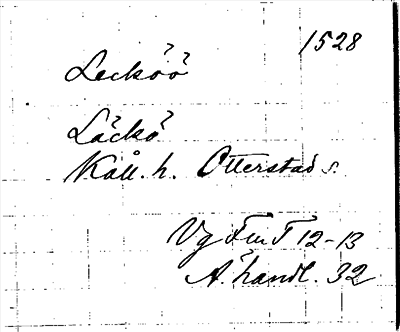 1528
Leckӧӧ
Läckö
Kåll. h. Otterstad s.
Vg FmT 12-13
A. handl. 32